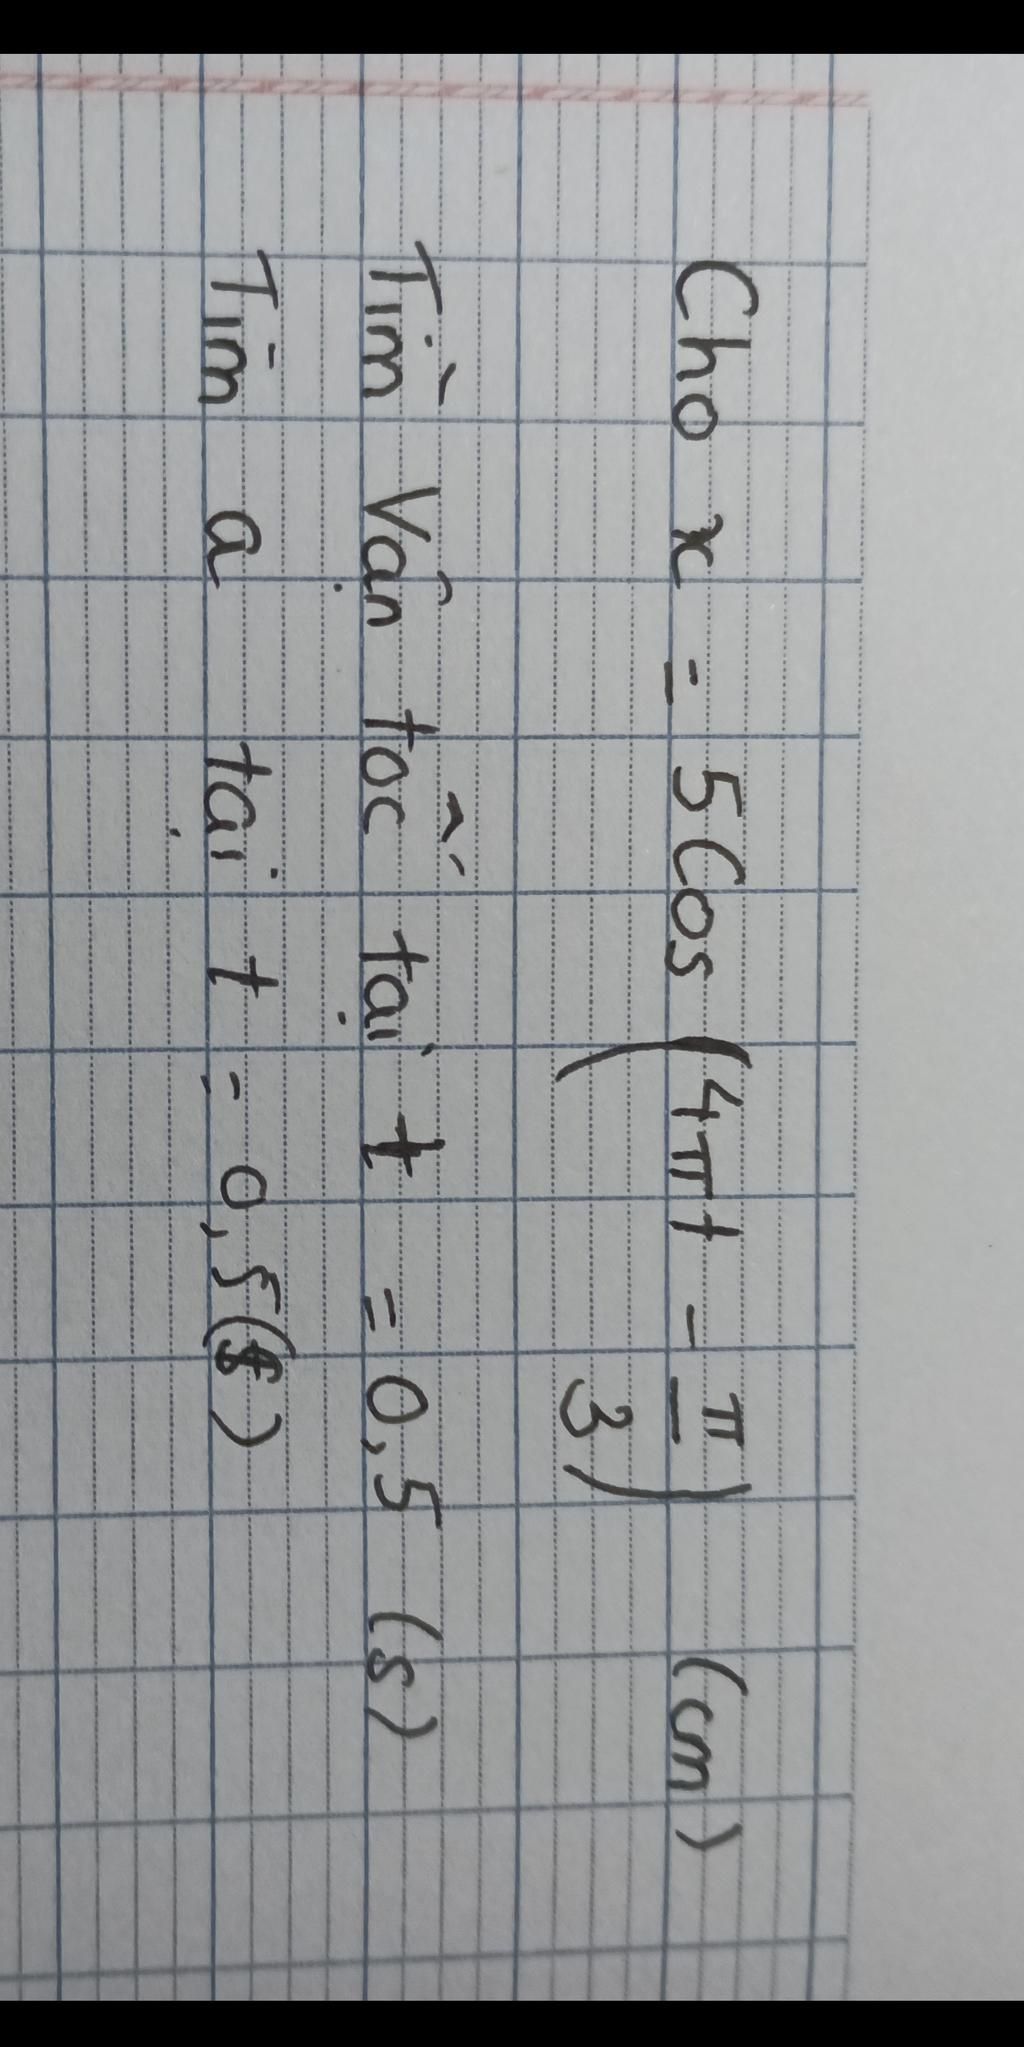 Cho x = 5cos(4πt - π/3) (cm)
Tìm vận tốc tại t = 0,5 (s)
Tìm a tại t = 0,5(s)